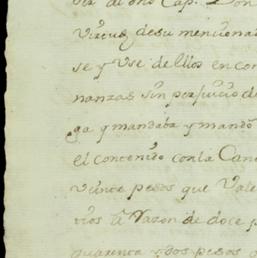 ser al dho Cap. Don
Virtud desu menciona
se y Use de llos en con
nanzas sin perjuicio d
ga q mandaba y mandó
el contenido con la Can
veinte pesos que Vale
rros a Razon de doce p
quarenta y dos pesos